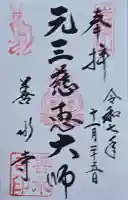 奉拝
令和七年
十一月二十五日
元三慈恵大師
善水寺